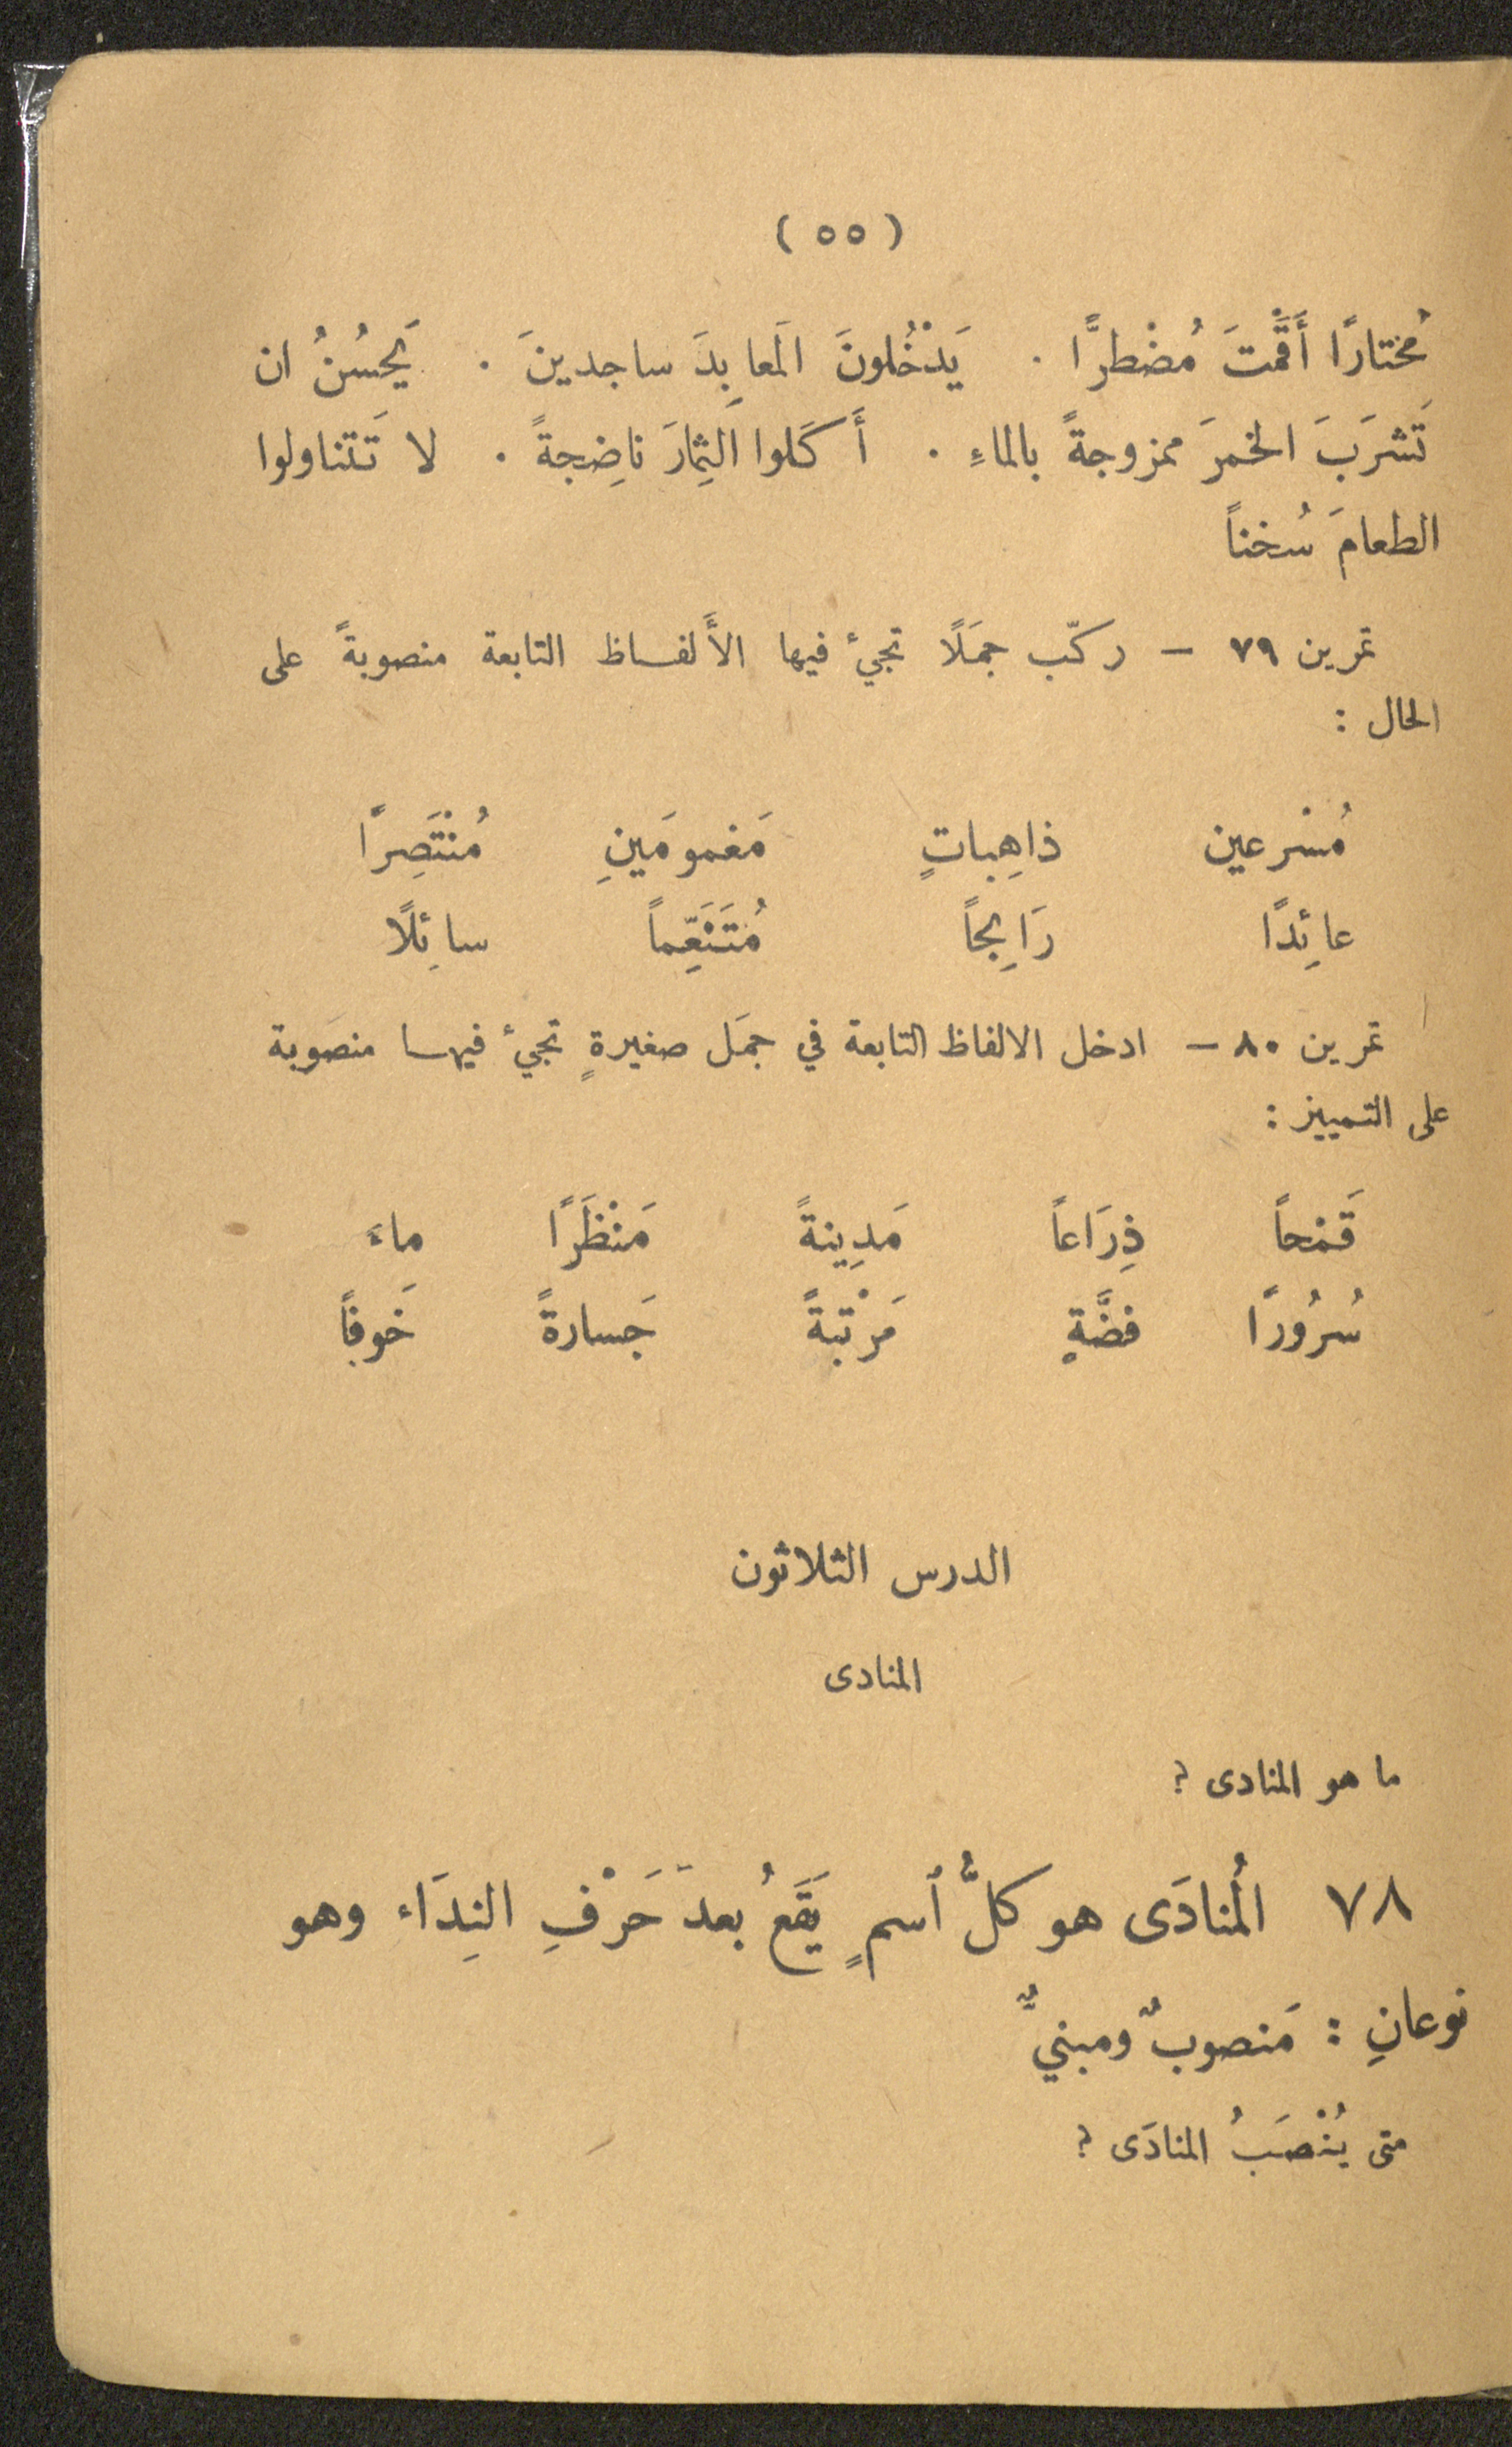 ( ٥٥ )
مُختارًا أَقَمْتَ مُضْطرًّا . يَدْخُلونَ المَعابِدَ ساجدينَ . يَحسُنُ ان
تَشرَبَ الخمرَ ممزوجةً بالماءِ . أَكَلوا الثِمارَ ناضِجةً . لا تَتناولوا
الطعامَ سُخناً
تمرين ٧٩ – ركّب جمَلًا تجيءُ فيها الأَلفاظ التابعة منصوبةً على
الحال :
مُسْرعين ذاهِباتٍ مَغمومَينِ مُنْتَصِرًا
عائِدًا رَابِحاً مُتَنَعِّماً سائِلًا
تمرين ٨٠ – ادخل الالفاظ التابعة في جمَل صغيرةٍ تجيءُ فيها منصَوبة
على التمييز :
قَمْحاً ذِرَاعاً مَدِينةً مَنْظَرًا ماءً
سُرُورًا فضَّةٍ مَرْتبةً جَسارةً خَوفاً
الدرس الثلاثون
المنادى
ما هو المنادى ؟
٧٨ المُنادَى هو كلُّ ٱسمٍ يَقَعُ بعدَ حَرْفِ النِدَاء وهو
نوعانِ : مَنصوبٌ ومبنيٌّ
متى يُنْصَبُ المنادَى ؟